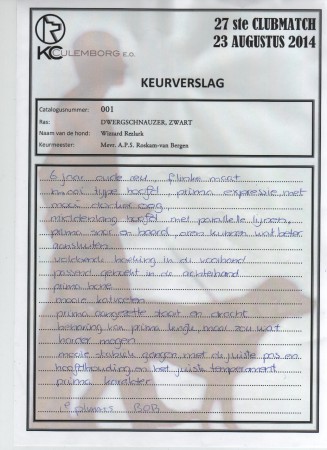 27 ste CLUBMATCH
23 AUGUSTUS 2014
KC CULEMBORG E.O.
KEURVERSLAG
Catalogusnummer: 001
Ras: DWERGSCHNAUZER, ZWART
Naam van de hond: Wizzard Redzrik
Keurmeester: Mevr. A.P.S. Roskam-van Bergen
6 jaar oude reu, flinke maat
mooi type hoofd, prima expressie met
mooi donker oog
middellang hoofd met parallelle lijnen,
prima snor en baard, oren kunnen wat beter
aansluiten
voldoende hoeking in de voorhand
passend gehoekt in de achterhand
prima bone
mooie katvoeten
prima aangezette staart en dracht
beharing van prima lengte, maar zou wat
harder mogen
mooie gangen met de juiste pas en
hoofdhouding en het juiste temperament
prima karakter
1e BOB